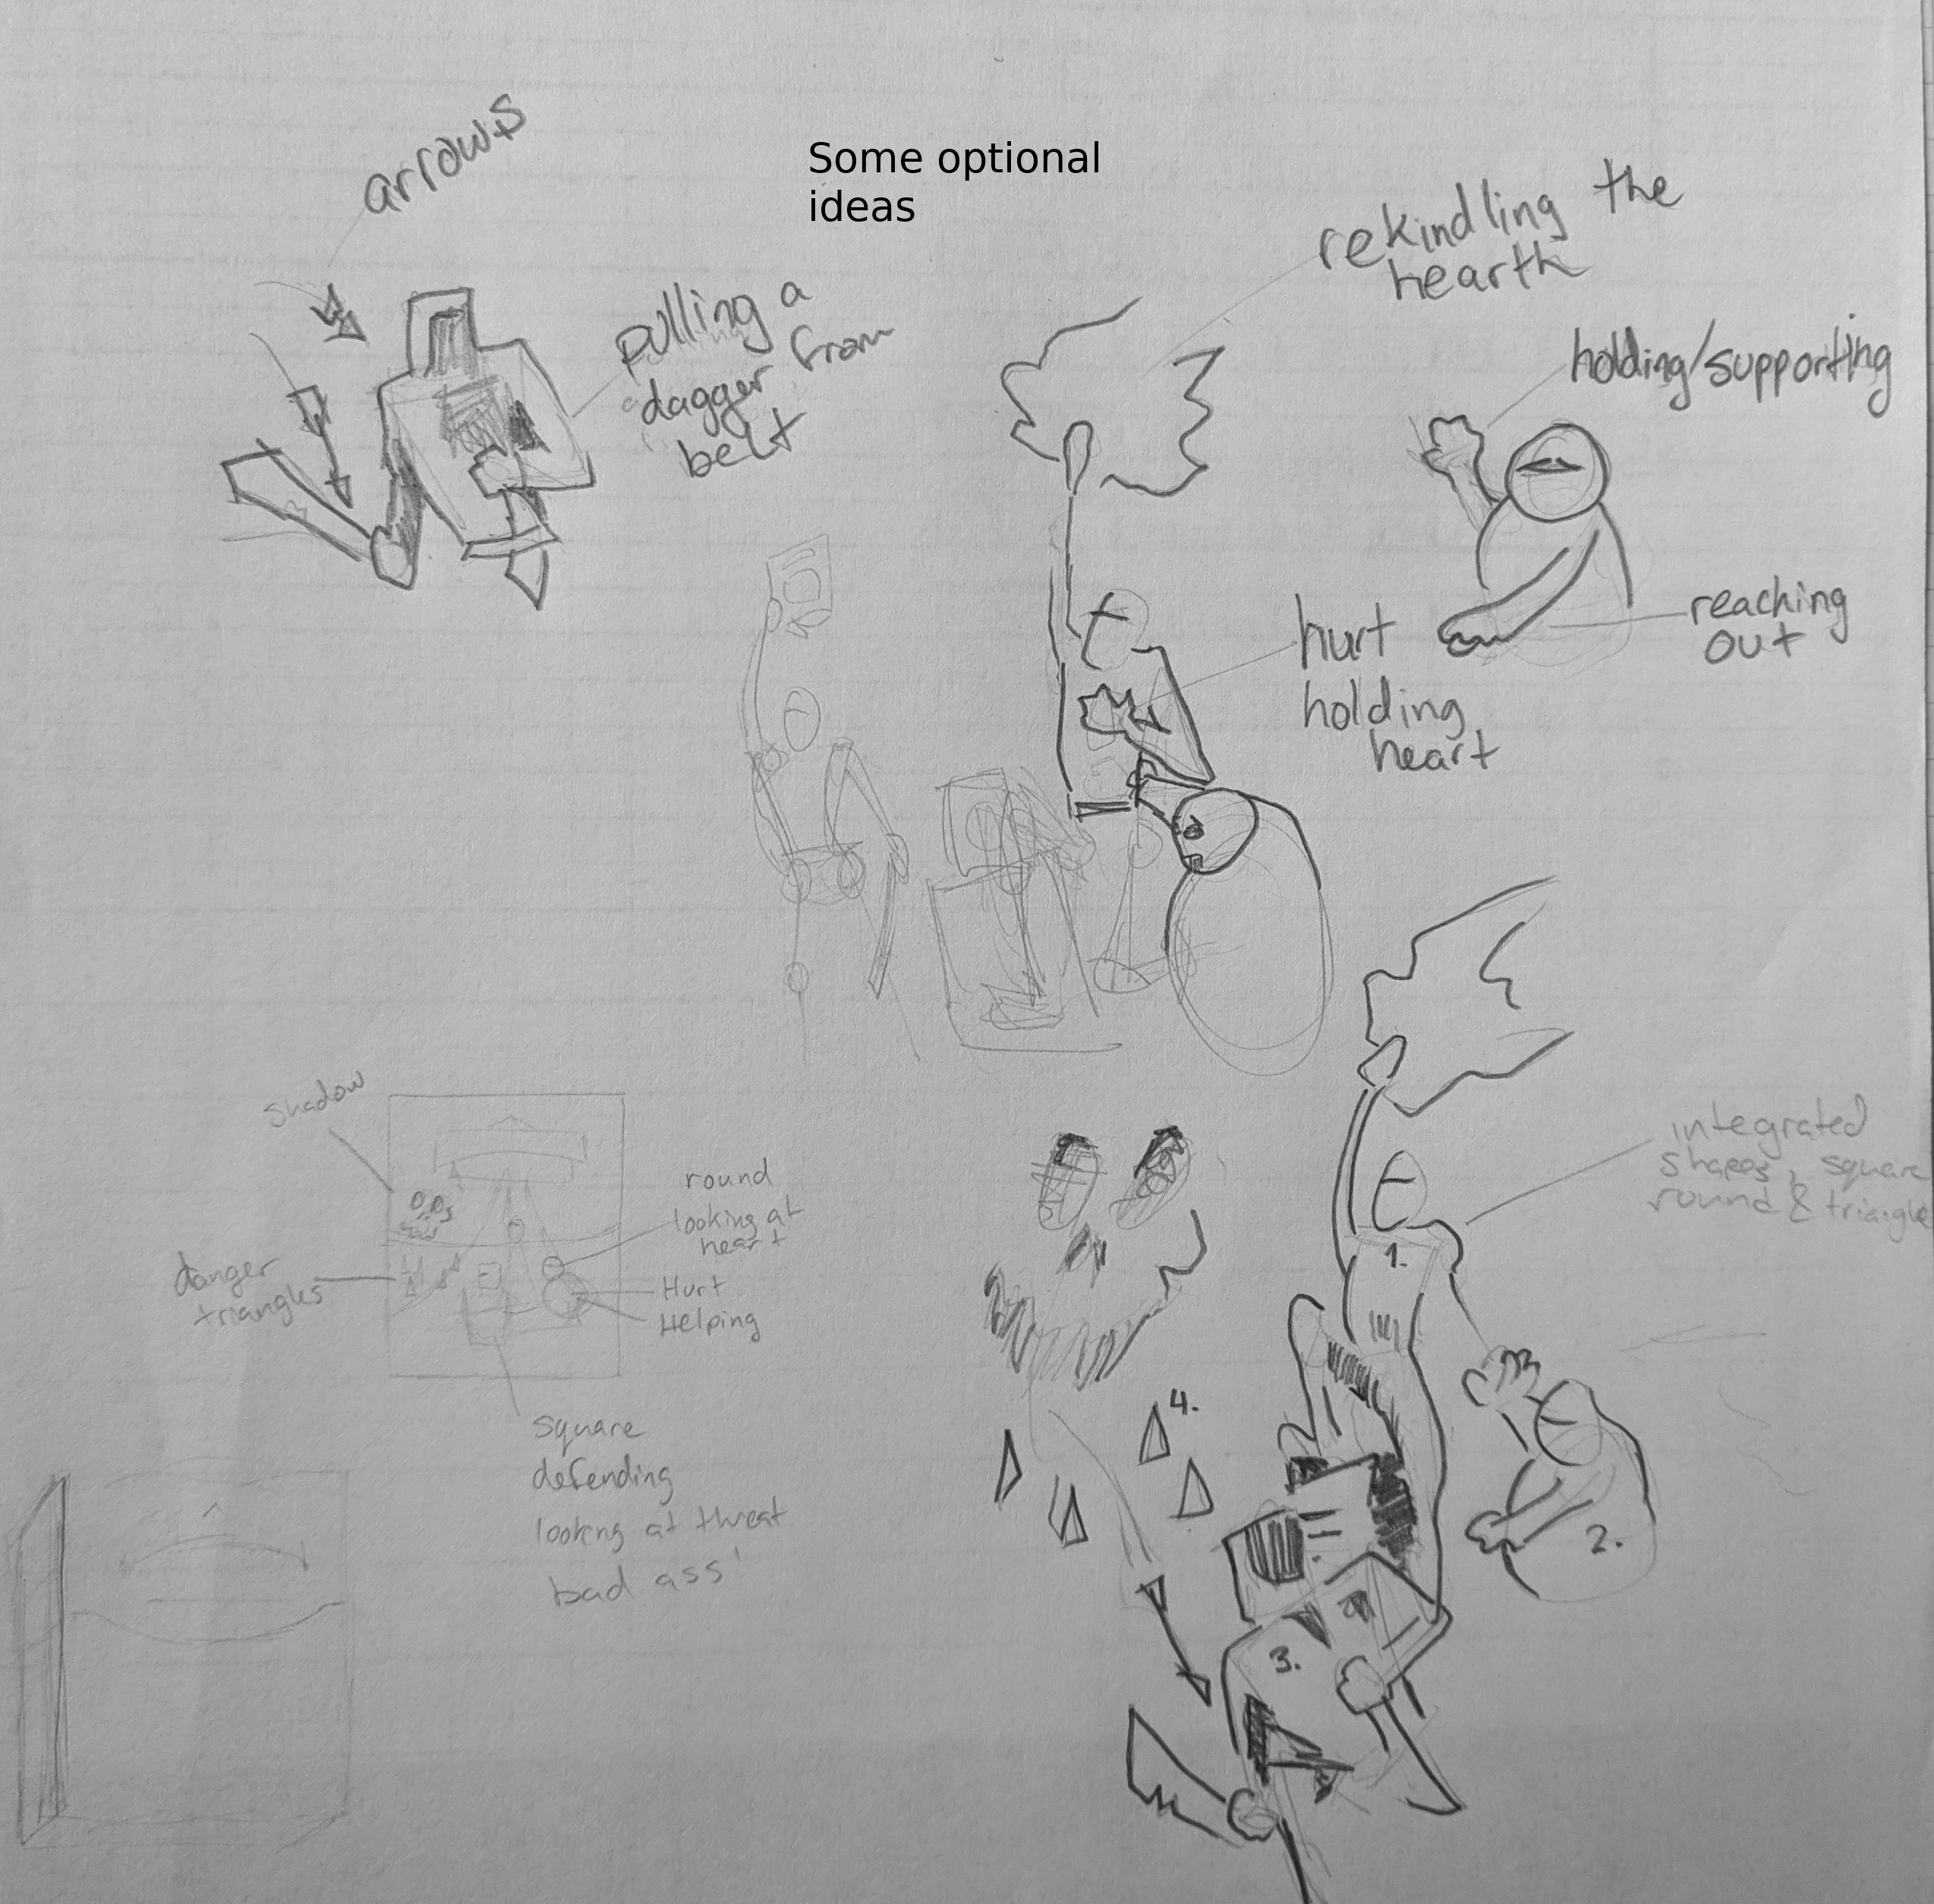 Some optional
ideas
arrows
pulling a
dagger from
belt
rekindling the
hearth
holding/supporting
reaching
out
hurt
holding
heart
Shadow
danger
triangles
round
looking at
heart
Hurt
Helping
square
defending
looking at threat
bad ass!
integrated
shapes, square
round & triangle
1.
2.
3.
4.